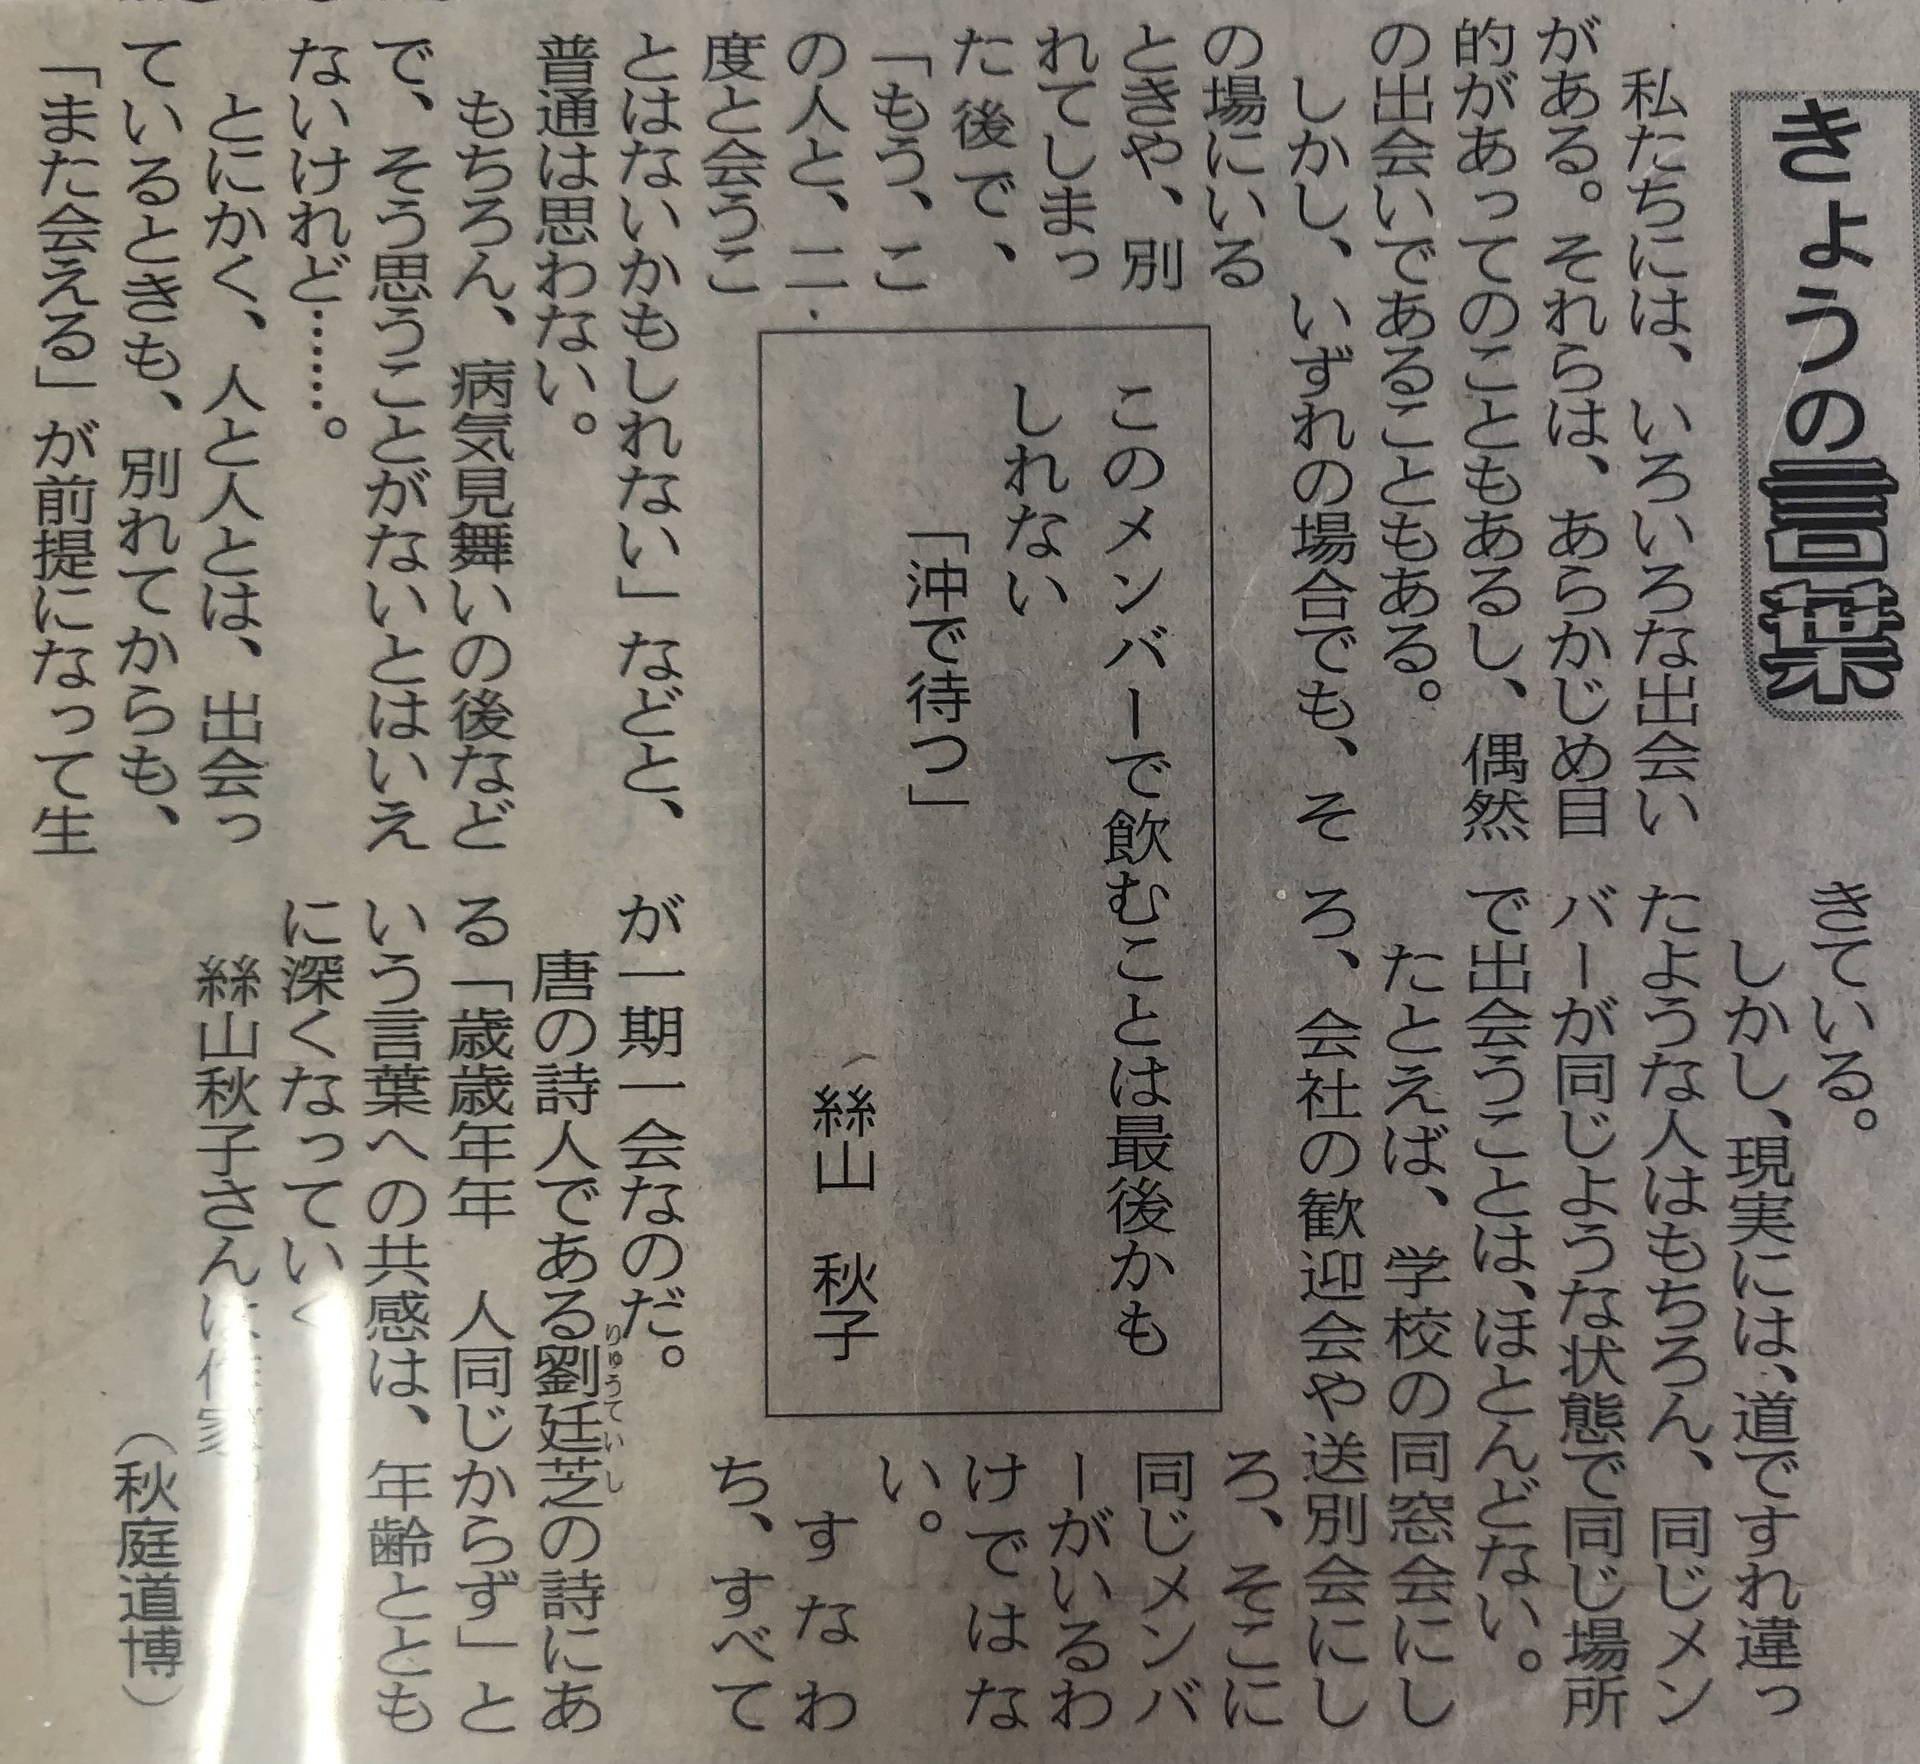 きょうの言葉
私たちには、いろいろな出会い
がある。それらは、あらかじめ目
的があってのこともあるし、偶然
の出会いであることもある。
しかし、いずれの場合でも、そ
の場にいる
ときや、別
れてしまっ
た後で、
「もう、こ
の人と、二
度と会うこ
とはないかもしれない」などと、
普通は思わない。
もちろん、病気見舞いの後など
で、そう思うことがないとはいえ
ないけれど……。
とにかく、人と人とは、出会っ
ているときも、別れてからも、
「また会える」が前提になって生
きている。
しかし、現実には、道ですれ違っ
たような人はもちろん、同じメン
バーが同じような状態で同じ場所
で出会うことは、ほとんどない。
たとえば、学校の同窓会にし
ろ、会社の歓迎会や送別会にし
ろ、そこに
同じメンバ
ーがいるわ
けではな
い。
すなわ
ち、すべて
が一期一会なのだ。
唐の詩人である劉廷芝の詩にあ
りゅうていし
る「歳歳年年　人同じからず」と
いう言葉への共感は、年齢ととも
に深くなっていく
絲山秋子さんは作家
（秋庭道博）
このメンバーで飲むことは最後かも
しれない
「沖で待つ」
絲山　秋子